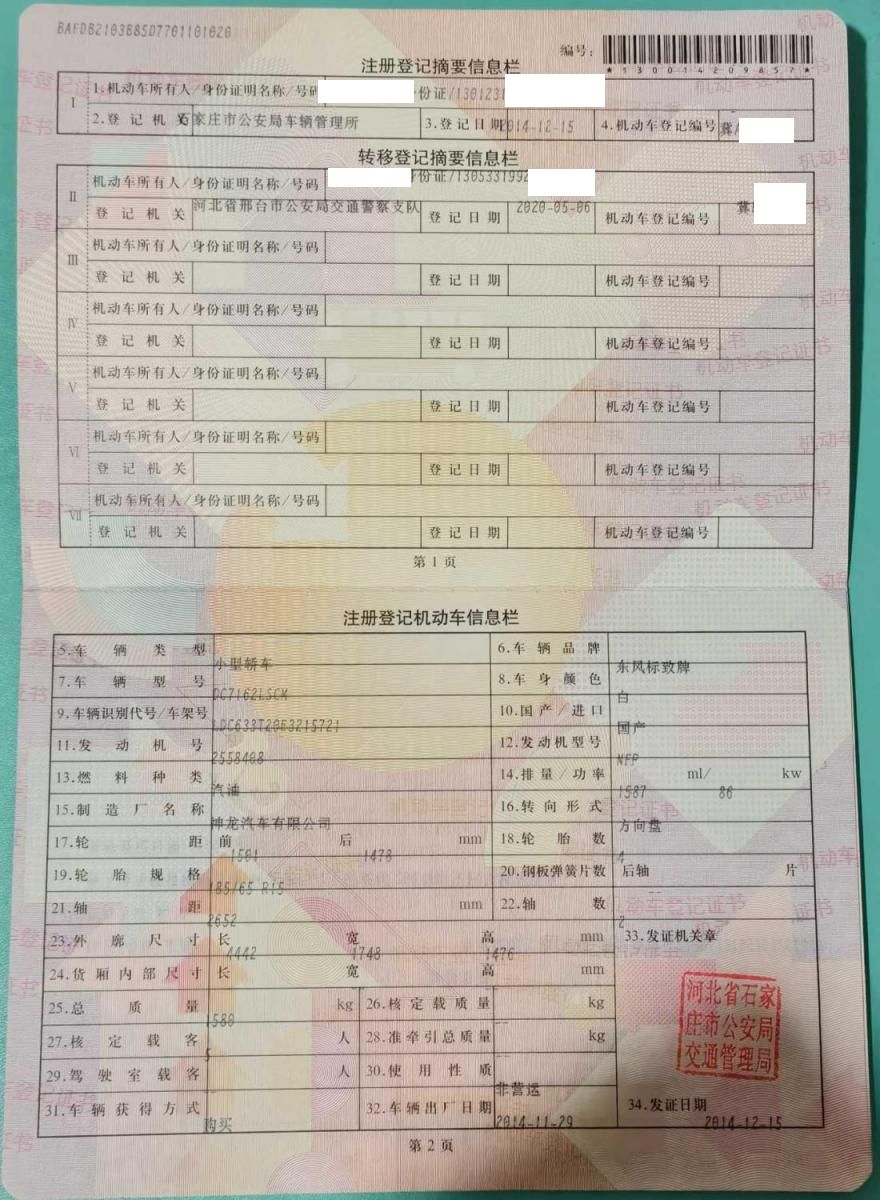 BAFDB2103B85D7701101020
编号：
*130014209857*
注册登记摘要信息栏
I 1.机动车所有人/身份证明名称/号码 份证/1301231
2.登记机关 石家庄市公安局车辆管理所 3.登记日期 2014-12-15 4.机动车登记编号 冀A
转移登记摘要信息栏
II 机动车所有人/身份证明名称/号码 份证/1305331992
登记机关 河北省邢台市公安局交通警察支队 登记日期 2020-05-06 机动车登记编号 冀
III 机动车所有人/身份证明名称/号码
登记机关 登记日期 机动车登记编号
IV 机动车所有人/身份证明名称/号码
登记机关 登记日期 机动车登记编号
V 机动车所有人/身份证明名称/号码
登记机关 登记日期 机动车登记编号
VI 机动车所有人/身份证明名称/号码
登记机关 登记日期 机动车登记编号
VII 机动车所有人/身份证明名称/号码
登记机关 登记日期 机动车登记编号
第1页
注册登记机动车信息栏
5.车辆类型 小型轿车 6.车辆品牌 东风标致牌
7.车辆型号 DC7162LSCM 8.车身颜色 白
9.车辆识别代号/车架号 LDC633T2053215721 10.国产/进口 国产
11.发动机号 2558408 12.发动机型号 NFP
13.燃料种类 汽油 14.排量/功率 1587 ml/ 86 kw
15.制造厂名称 神龙汽车有限公司 16.转向形式 方向盘
17.轮距 前 1501 后 1478 mm 18.轮胎数 4
19.轮胎规格 185/65 R15 20.钢板弹簧片数 后轴 -- 片
21.轴距 2652 mm 22.轴数 2
23.外廓尺寸 长 4442 宽 1748 高 1476 mm 33.发证机关章
24.货厢内部尺寸 长 宽 高 mm
25.总质量 1580 kg 26.核定载质量 -- kg
27.核定载客 5 人 28.准牵引总质量 -- kg
河北省石家
庄市公安局
交通管理局
29.驾驶室载客 -- 人 30.使用性质 非营运
31.车辆获得方式 购买 32.车辆出厂日期 2014-11-29 34.发证日期 2014-12-15
第2页